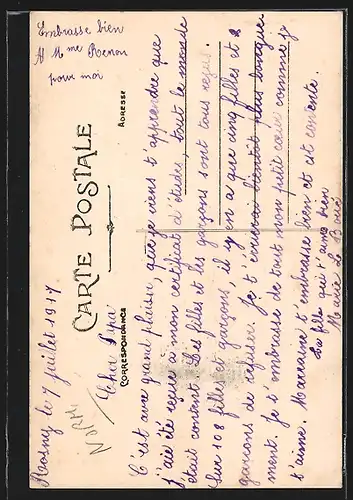 CARTE POSTALE
CORRESPONDANCE
ADRESSE
Rosny le 7 juillet 1917
Cher Papa
C'est avec grand plaisir, que je viens t'apprendre que
j'ai été reçue à mon certificat d'études, tout le monde
était content. Les filles et les garçons sont tous reçus.
Sur 108 filles et garçons, il y en a que cinq filles et 2
garçons de refuser. Je t'écrirai bientôt plus longue-
ment. Je t'embrasse de tout mon petit cœur comme je
t'aime. Marraine t'embrasse bien et est contente.
Ta fille qui t'aime bien
Marie Le
Embrasse bien
M Mme Renou
pour moi